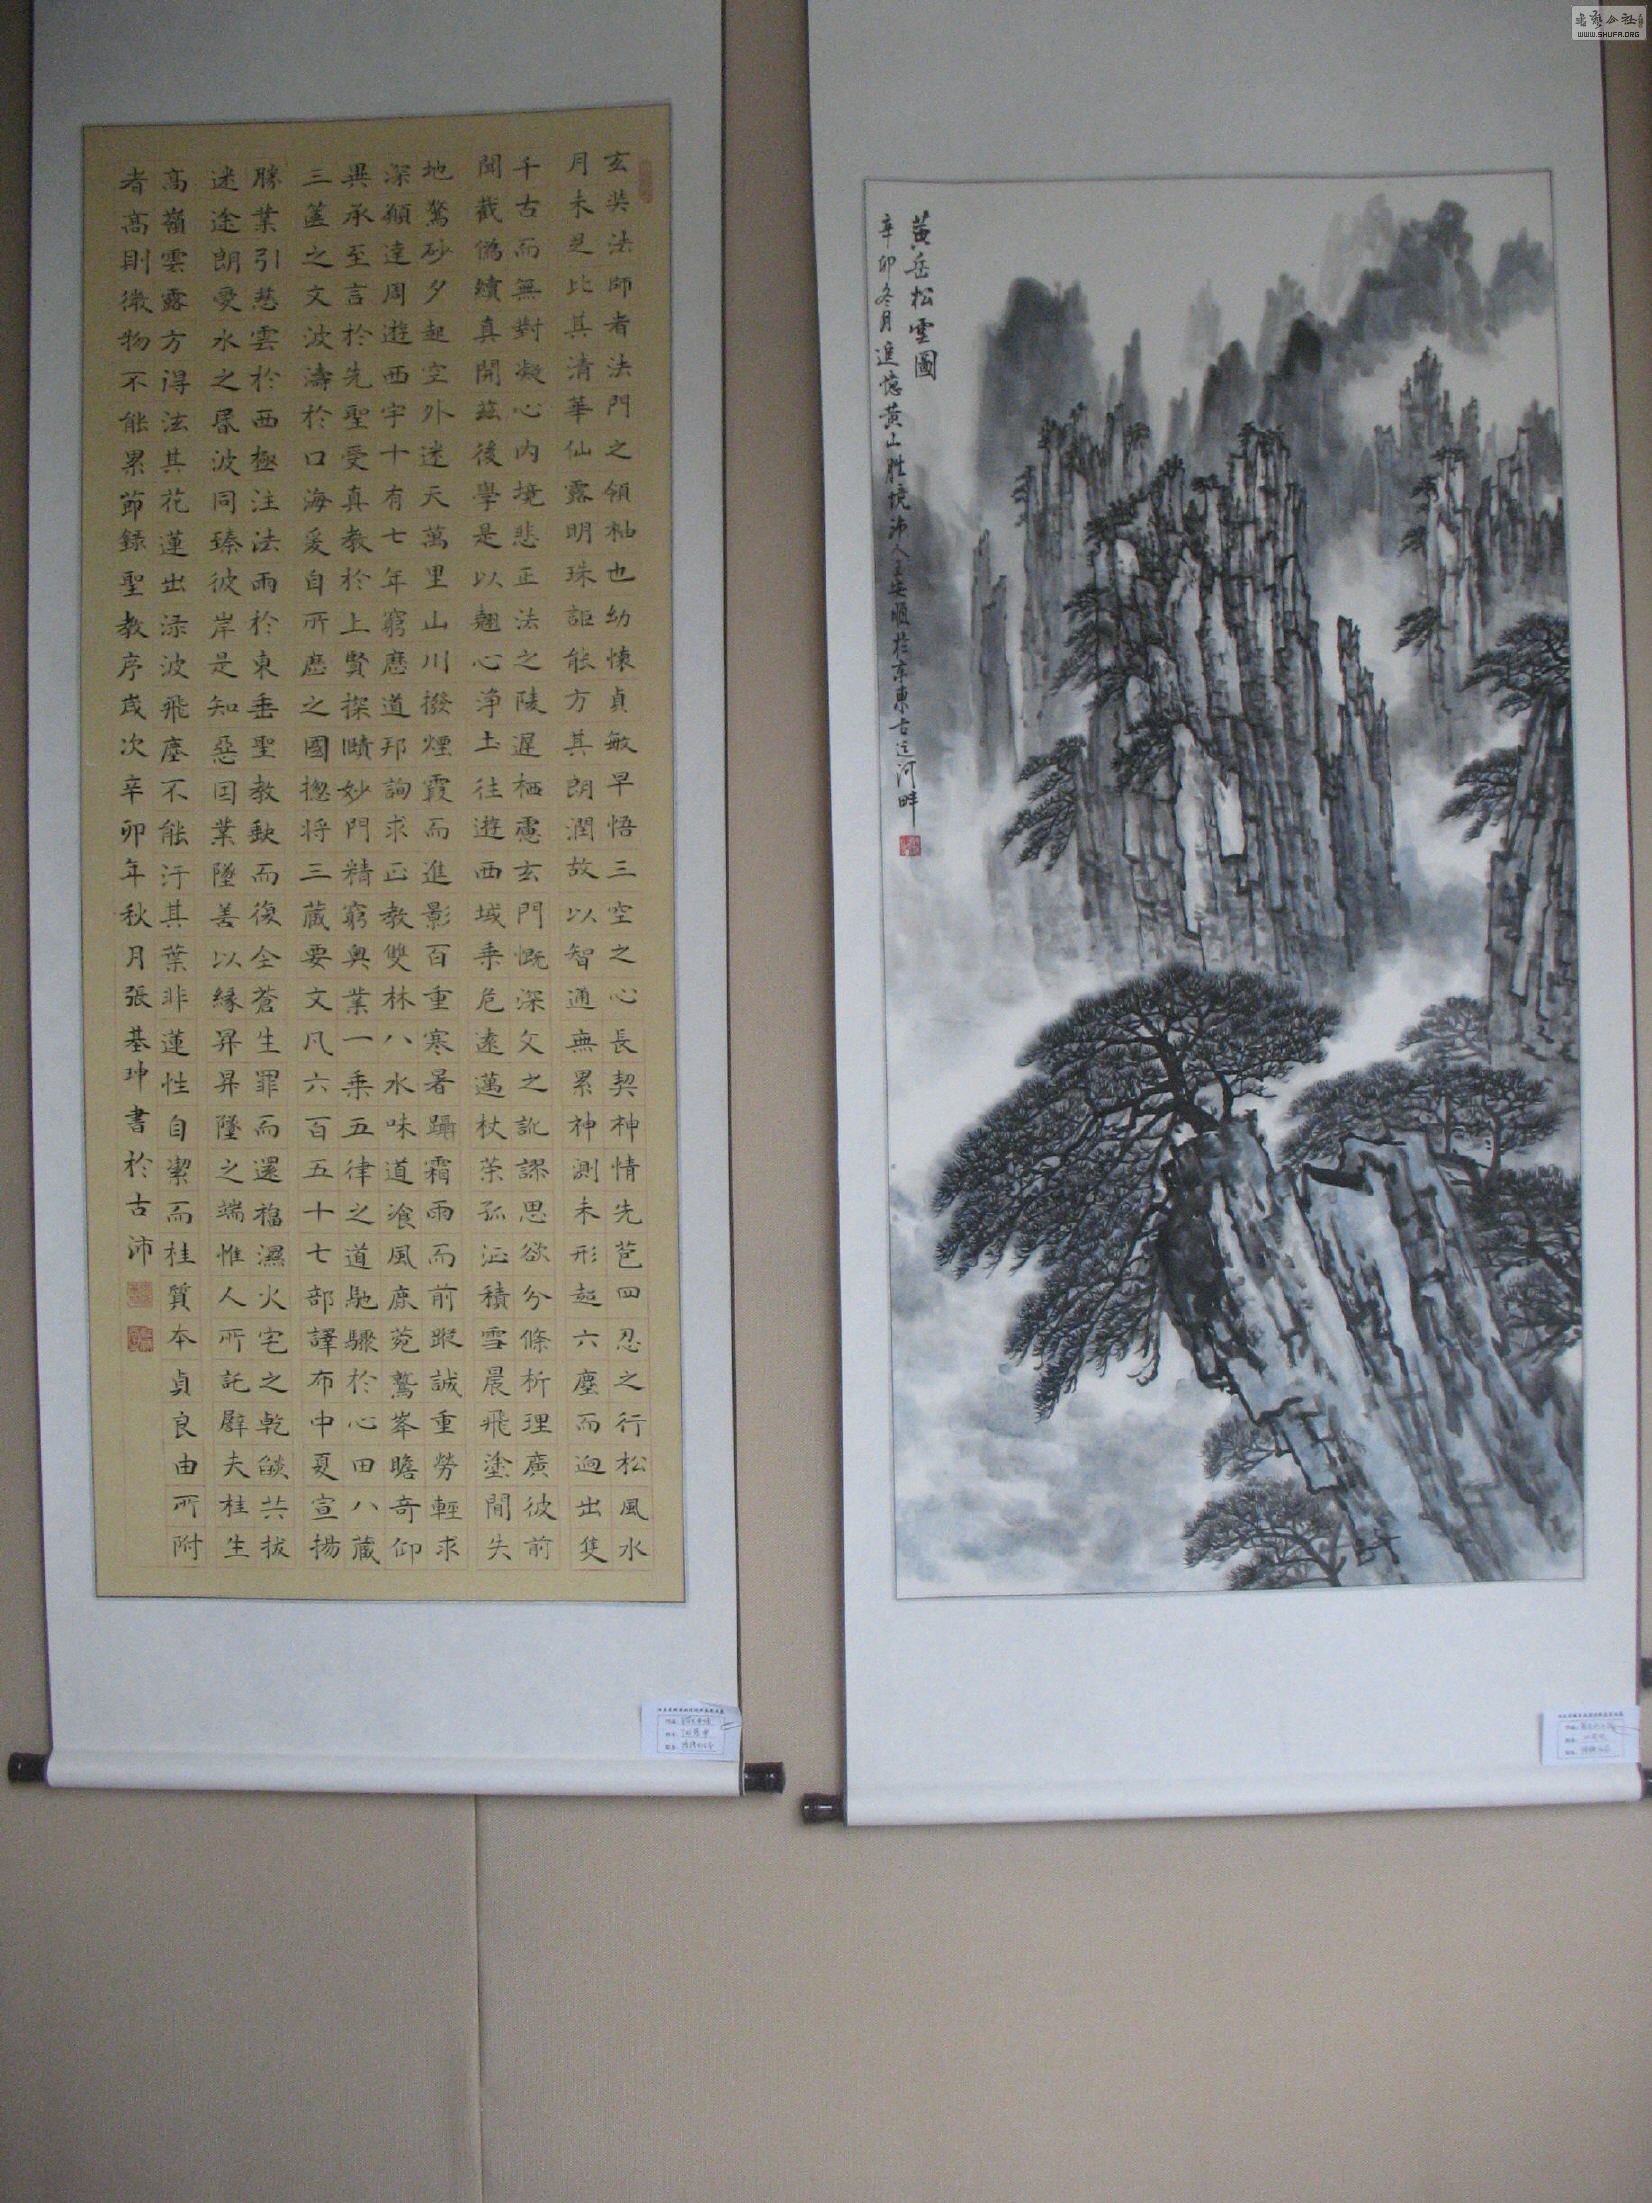 玄奘法師者法門之領袖也幼懷貞敏早悟三空之心長契神情先苞四忍之行松風水
月未足比其清華仙露明珠詎能方其朗潤故以智通無累神測未形超六塵而迥出隻
千古而無對凝心内境悲正法之陵遲栖慮玄門慨深文之訛謬思欲分條析理廣彼前
聞截僞續真開茲後學是以翹心淨土往遊西域乘危遠邁杖策孤征積雪晨飛塗間失
地驚砂夕起空外迷天萬里山川撥煙霞而進影百重寒暑躡霜雨而前蹤誠重勞輕求
深願達周遊西宇十有七年窮歷道邦詢求正教雙林八水味道飡風鹿菀鷲峯瞻奇仰
異承至言於先聖受真教於上賢探賾妙門精窮奥業一乘五律之道馳驟於心田八藏
三篋之文波濤於口海爰自所歷之國揔將三藏要文凡六百五十七部譯布中夏宣揚
勝業引慈雲於西極注法雨於東垂聖教缺而復全蒼生罪而還福濕火宅之乾燄共拔
迷途朗愛水之昏波同臻彼岸是知惡因業墜善以緣昇昇墜之端惟人所託譬夫桂生
高嶺雲露方得泫其花蓮出淥波飛塵不能汙其葉非蓮性自潔而桂質本貞良由所附
者高則微物不能累節録聖教序歲次辛卯年秋月張基珅書於古沛
黃岳松雲圖
辛卯冬月追憶黃山胜境沛人王安順於京東古运河畔
書藝公社
WWW.SHUFA.ORG